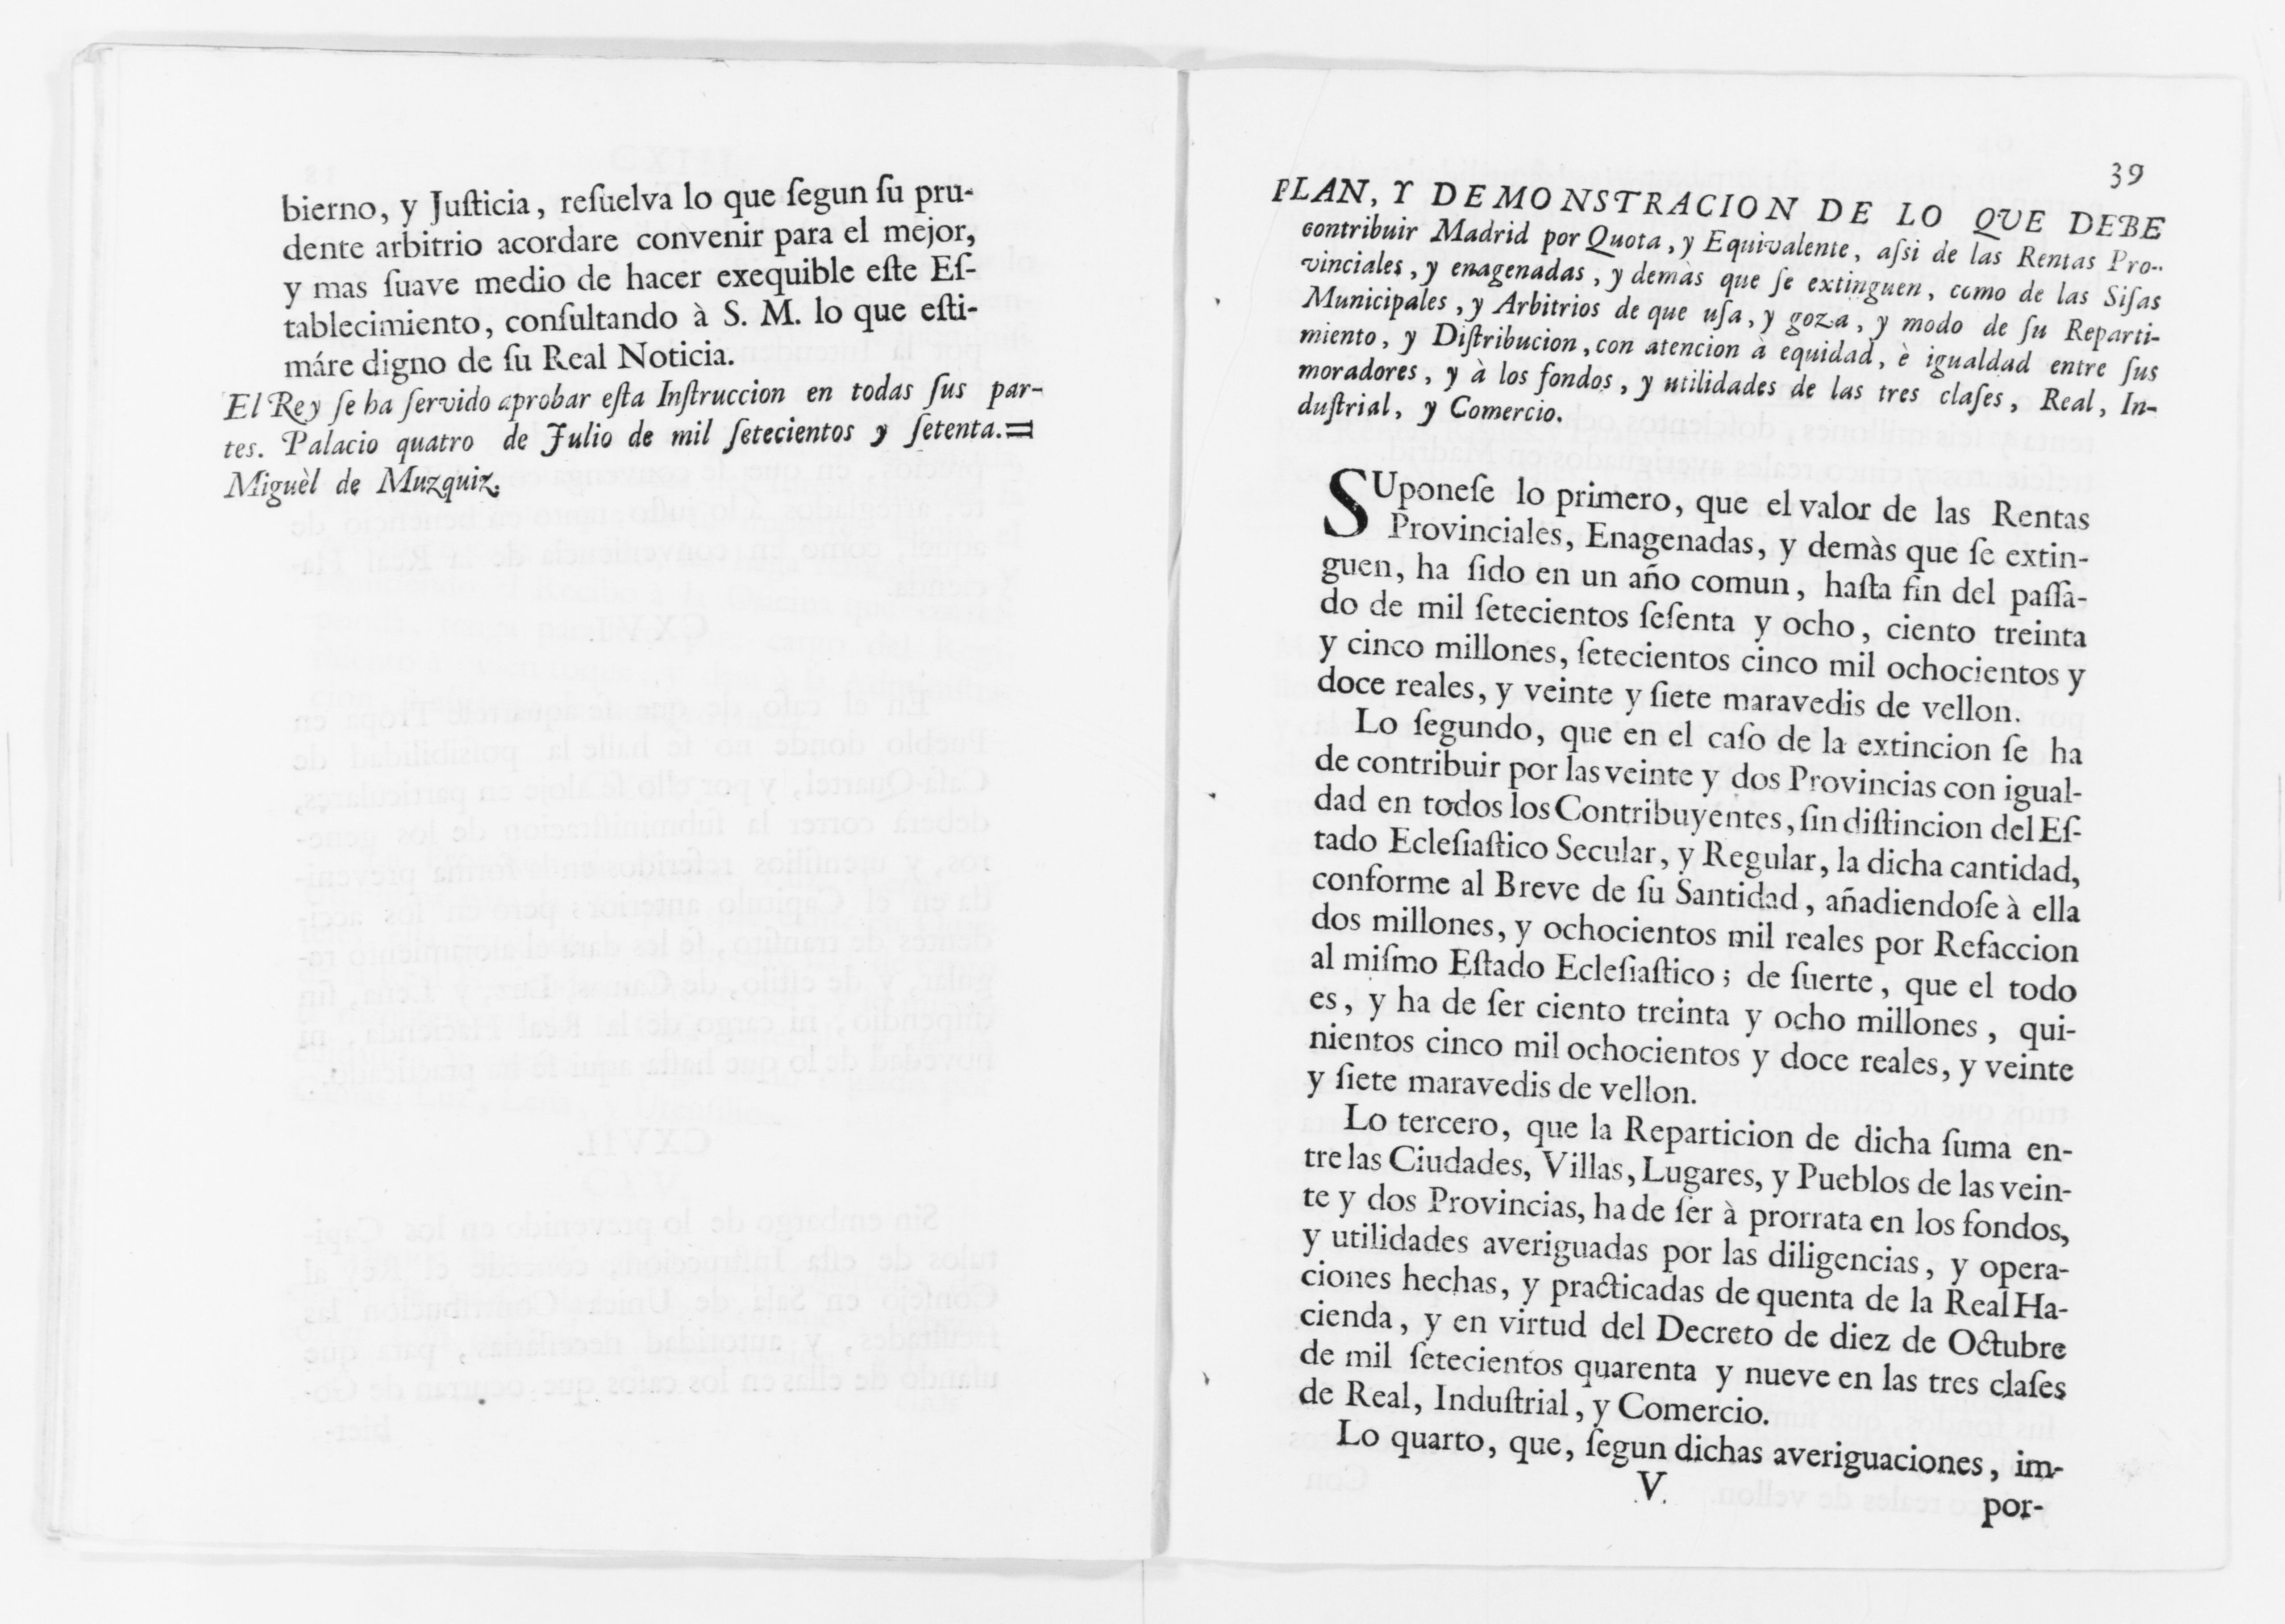 bierno, y Juſticia, reſuelva lo que ſegun ſu pru-
dente arbitrio acordare convenir para el mejor,
y mas ſuave medio de hacer exequible eſte Eſ-
tablecimiento, conſultando à S. M. lo que eſti-
máre digno de ſu Real Noticia.
El Rey ſe ha ſervido aprobar eſta Inſtruccion en todas ſus par-
tes. Palacio quatro de Julio de mil ſetecientos y ſetenta.=
Miguèl de Muzquiz.
39
PLAN, Y DEMONSTRACION DE LO QUE DEBE
contribuir Madrid por Quota, y Equivalente, aſsi de las Rentas Pro-
vinciales, y enagenadas, y demàs que ſe extinguen, como de las Siſas
Municipales, y Arbitrios de que uſa, y goza, y modo de ſu Reparti-
miento, y Diſtribucion, con atencion à equidad, è igualdad entre ſus
moradores, y à los fondos, y utilidades de las tres claſes, Real, In-
duſtrial, y Comercio.
SUponeſe lo primero, que el valor de las Rentas
Provinciales, Enagenadas, y demàs que ſe extin-
guen, ha ſido en un año comun, haſta fin del paſſa-
do de mil ſetecientos ſeſenta y ocho, ciento treinta
y cinco millones, ſetecientos cinco mil ochocientos y
doce reales, y veinte y ſiete maravedis de vellon.
Lo ſegundo, que en el caſo de la extincion ſe ha
de contribuir por las veinte y dos Provincias con igual-
dad en todos los Contribuyentes, ſin diſtincion del Eſ-
tado Ecleſiaſtico Secular, y Regular, la dicha cantidad,
conforme al Breve de ſu Santidad, añadiendoſe à ella
dos millones, y ochocientos mil reales por Refaccion
al miſmo Eſtado Ecleſiaſtico; de ſuerte, que el todo
es, y ha de ſer ciento treinta y ocho millones, qui-
nientos cinco mil ochocientos y doce reales, y veinte
y ſiete maravedis de vellon.
Lo tercero, que la Reparticion de dicha ſuma en-
tre las Ciudades, Villas, Lugares, y Pueblos de las vein-
te y dos Provincias, ha de ſer à prorrata en los fondos,
y utilidades averiguadas por las diligencias, y opera-
ciones hechas, y practicadas de quenta de la Real Ha-
cienda, y en virtud del Decreto de diez de Octubre
de mil ſetecientos quarenta y nueve en las tres claſes
de Real, Induſtrial, y Comercio.
Lo quarto, que, ſegun dichas averiguaciones, im-
V.
por-